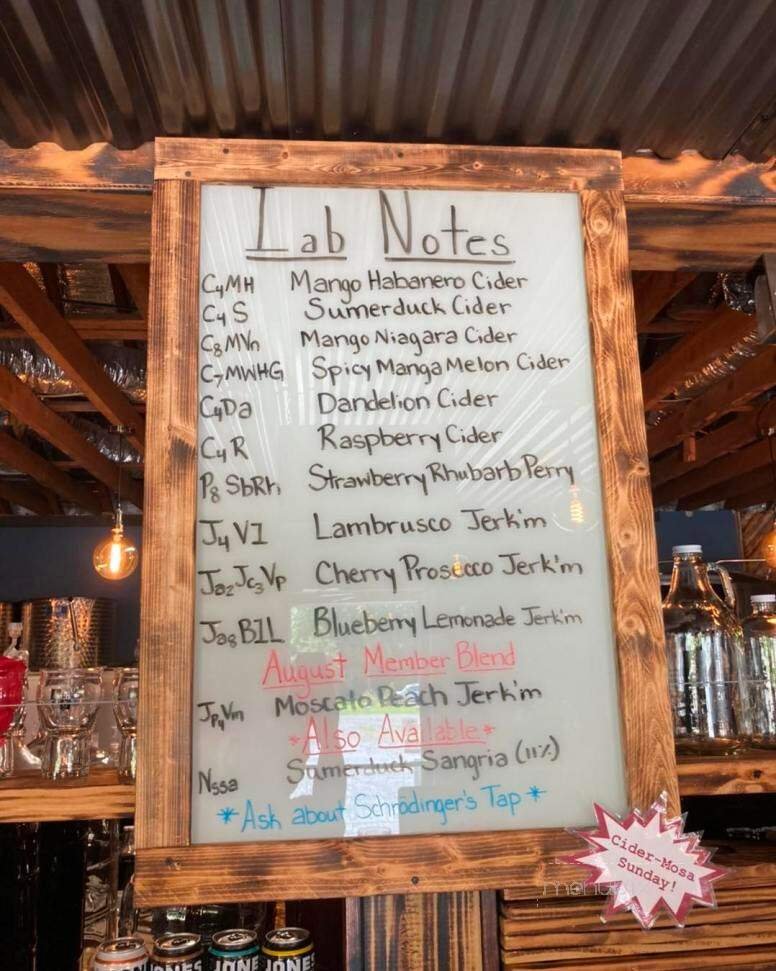 Lab Notes
C4MH Mango Habanero Cider
C4S Sumerduck Cider
C8MVn Mango Niagara Cider
C7MWHG Spicy Manga Melon Cider
C4Da Dandelion Cider
C4R Raspberry Cider
P8SbRh Strawberry Rhubarb Perry
J4VI Lambrusco Jerk'm
Ja2Jc3Vp Cherry Prosecco Jerk'm
Ja8BIL Blueberry Lemonade Jerk'm
August Member Blend
Jp4Vm Moscato Peach Jerk'm
*Also Available*
Nssa Sumerduck Sangria (11%)
*Ask about Schrodinger's Tap*
Cider-Mosa
Sunday!
JONES
JONE
JONES